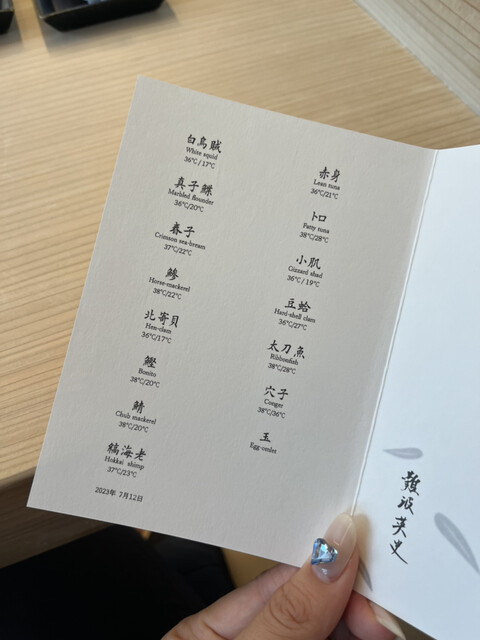 白烏賊
White squid
36℃/17℃
真子鰈
Marbled flounder
36℃/20℃
春子
Crimson sea-bream
37℃/22℃
鯵
Horse-mackerel
38℃/22℃
北寄貝
Hen-clam
36℃/17℃
鰹
Bonito
38℃/20℃
鯖
Chub mackerel
38℃/20℃
縞海老
Hokkai shimp
37℃/23℃
2023年 7月12日
赤身
Lean tuna
36℃/21℃
トロ
Fatty tuna
38℃/28℃
小肌
Gizzard shad
36℃/19℃
豆蛤
Hard-shell clam
36℃/27℃
太刀魚
Ribbonfish
38℃/28℃
穴子
Conger
38℃/36℃
玉
Egg omlet
難波英史